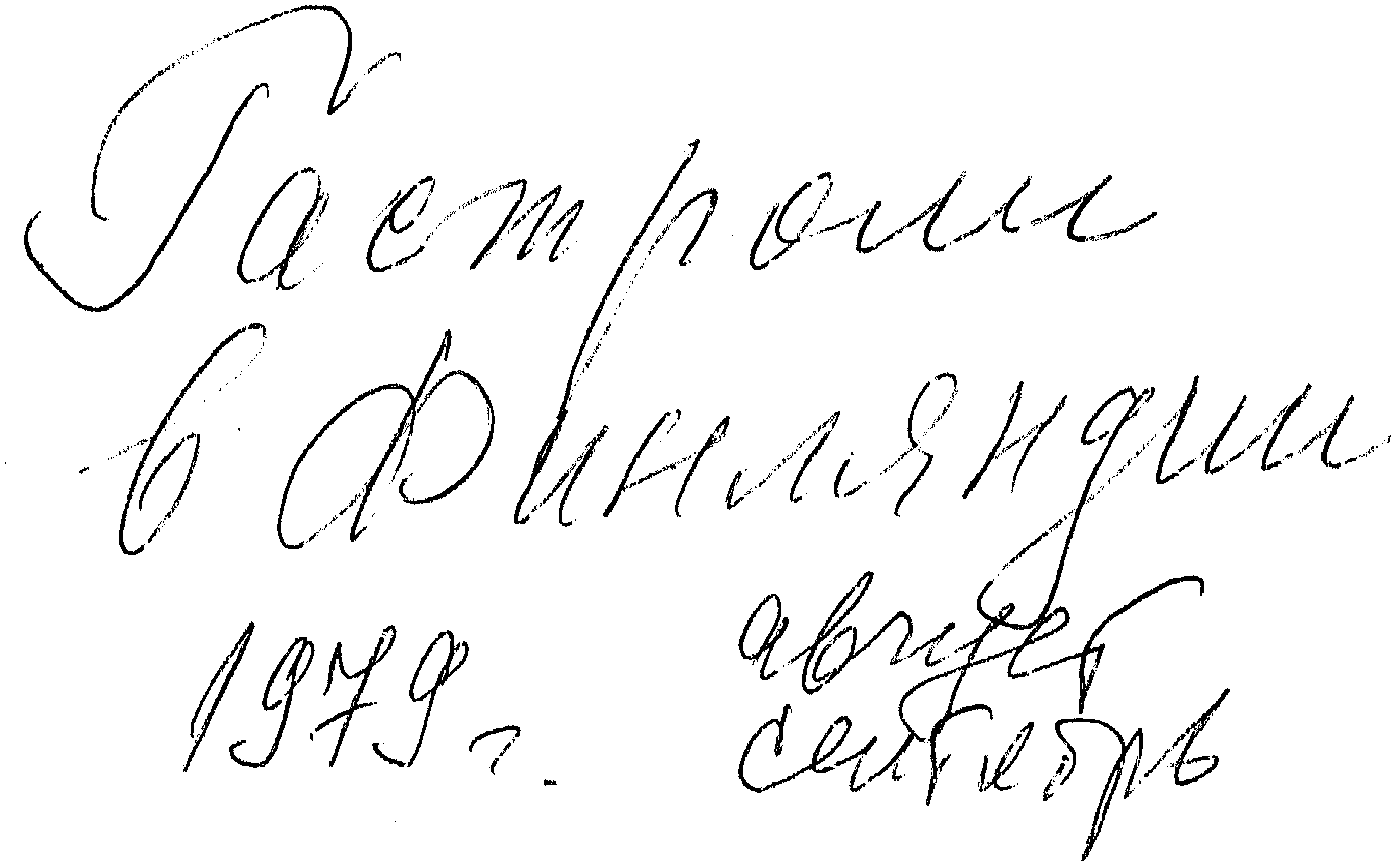 Гастроли
в Финляндии
1979 г. август
сентябрь